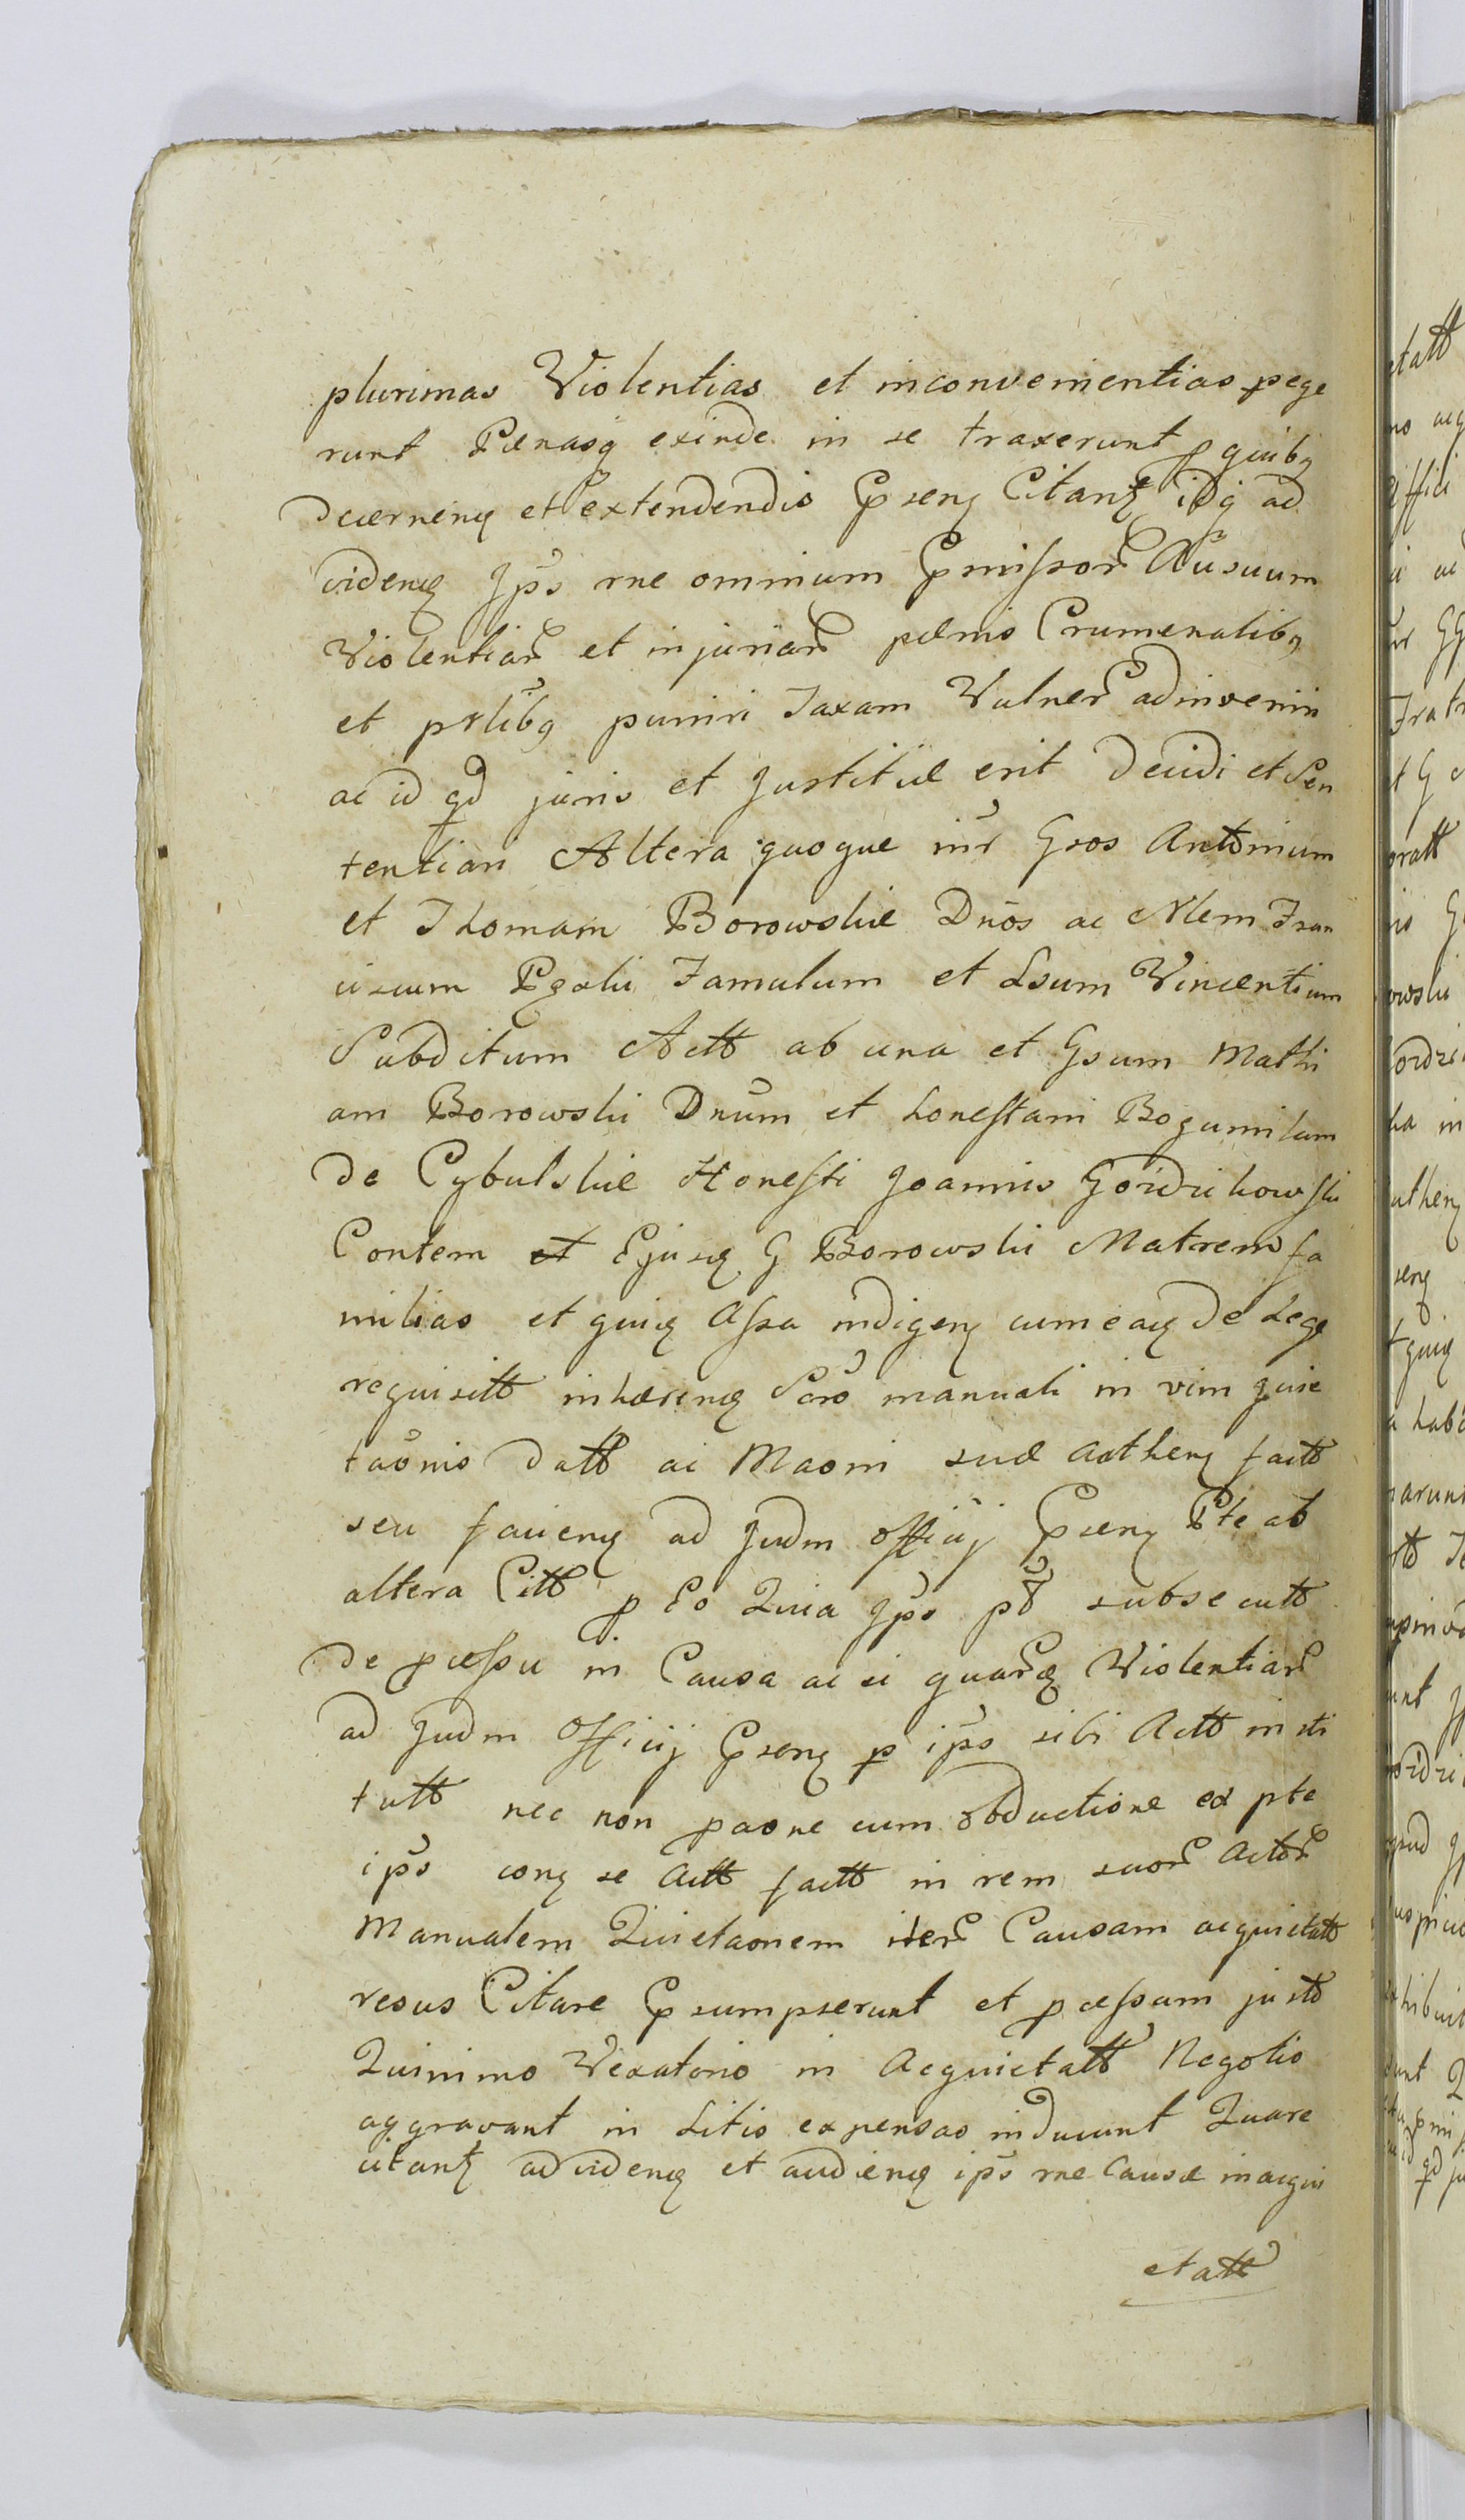 plurimas Violentias et inconvenientias pege
runt Pænasq exinde in se traxerunt p quibq
decernenq et extendendis Pseng Citantʒ idq ad
videnq Jps rne omnium Pmissor Ausuum
Violentiar et injuriar pænis Crumenalibq
et prlibq puniri Taxam Vulner adinveniri
ac id qd juris et Justitiæ erit decidi et Sen
tentiari Altera quoque inr Gsos Antonium
et Thomam Borowskie Dnos ac Nlem Fran
ciscum Famulum et Lsum Vincentium
Subditum Actt ab una et Gsum Mathi
am Borowski Dnum et honestam Bogumilam
de Cybulskie Honesti Joannis
Contem et Ejusq G Borowski Matrem fa
milias et quiq Assa indigenq cumeaq de Lege
requisitt inhærenq Scro manuali in vim quie
taonis datt ac Maoni suæ Autheng factt
seu faciend ad Judm officij Pseng Pte ab
altera Citt p Eo Quia Jps pd subsecutt
de pcessu in Causa ac si quarq Violentiar
ad Judm Officij Pseng p ips sibi Actt insti
tutt nec non paone cum obductione ex pte
ips cong se Actt factt in rem suor Actor
Manualem Quietaonem iter Causam acquietatt
resus Citare Psumpserunt et pcessum justo
Quinimo Vexatorio in Acquietatt Negotio
aggravant in Litis expensas inducunt Quare
citantʒ ad videnq et audienq ips rne Causæ inacqui
etatt